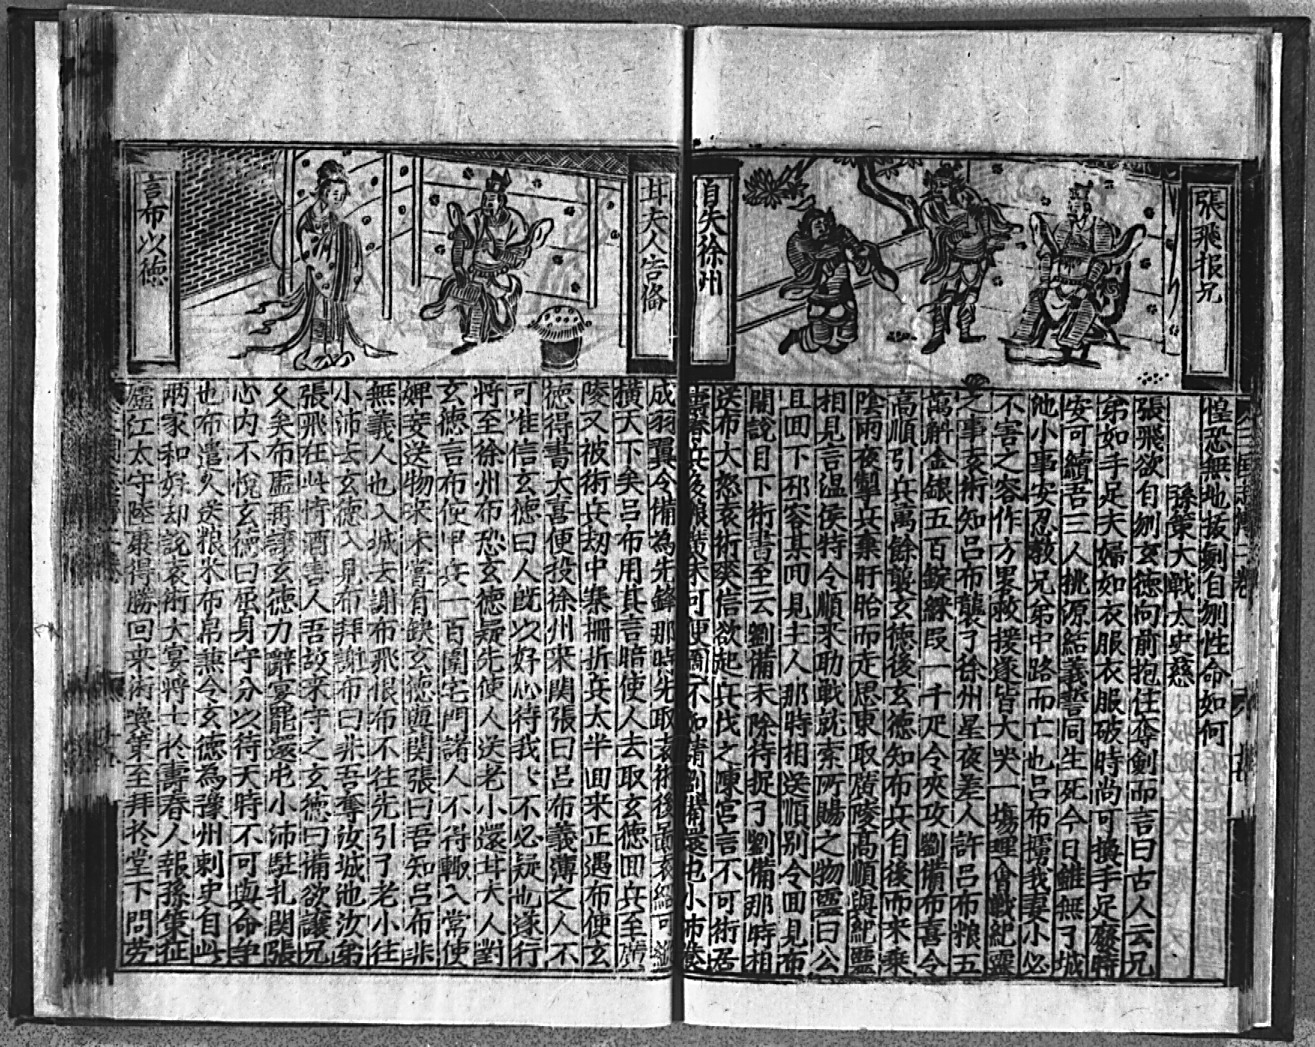 張飛报兄
自失徐州
惶恐無地抜劍自刎性命如何
孫策大戰太史慈
張飛欲自刎玄徳向前抱住奪劍而言曰古人云兄
弟如手足夫婦如衣服衣服破時尚可換手足廢時
安可續吾三人桃源結義誓同生死今日雖無了城
池小事安忍教兄弟中路而亡也吕布擄我妻小必
不害之容作方畧救援遂皆大哭一塲理會戰紀靈
之事袁術知吕布襲了徐州星夜差人許吕布粮五
萬斛金銀五百錠綵段一千疋令夾攻劉備布喜令
高順引兵萬餘襲玄徳後玄徳知布兵自後而來乗
陰雨夜掣兵棄盱眙而走思東取廣陵髙順與紀靈
相見言温侯特令順來助戰就索所賜之物靈曰公
且回下邳容某回見主人那時相送順别令回見布
開說目下術書至云劉備未除待捉了劉備那時相
送布大怒袁術爽信欲起兵伐之陳宮言不可術居
壽春兵後粮廣未可便圖不如請劉備還屯小沛養
耳夫人告俻
言布以徳
成羽翼令備為先鋒那時先取袁術後圖袁紹可縱
横天下矣吕布用其言暗使人去取玄徳回兵至廣
陵又被術兵刼中寨柵折兵太半回来正遇布使玄
徳得書大喜便投徐州来関張曰吕布義薄之人不
可准信玄徳曰人旣以好心待我以不必疑也遂行
將至徐州布恐玄徳疑先使人送老小還甘夫人對
玄徳言布使甲兵一百圍宅門諸人不得輙入常使
婢妾送物来未嘗有缺玄徳與関張曰吾知吕布非
無義人也入城去謝布飛恨布不徃先引了老小徃
小沛去玄徳入見布拜謝布曰非吾奪汝城池汝弟
張飛在此恃酒害人吾故来守之玄徳曰備欲讓兄
乆矣布虚再讓玄徳力辭宴罷還屯小沛駐扎関張
心内不悅玄徳曰屈身守分以待天時不可與命争
也布遣人送粮米布帛燕令玄徳為豫州刺史自此
兩家和好却說袁術大宴將士於壽春人報孫策征
廬江太守陸康得勝回来術喚策至拜於堂下問劳